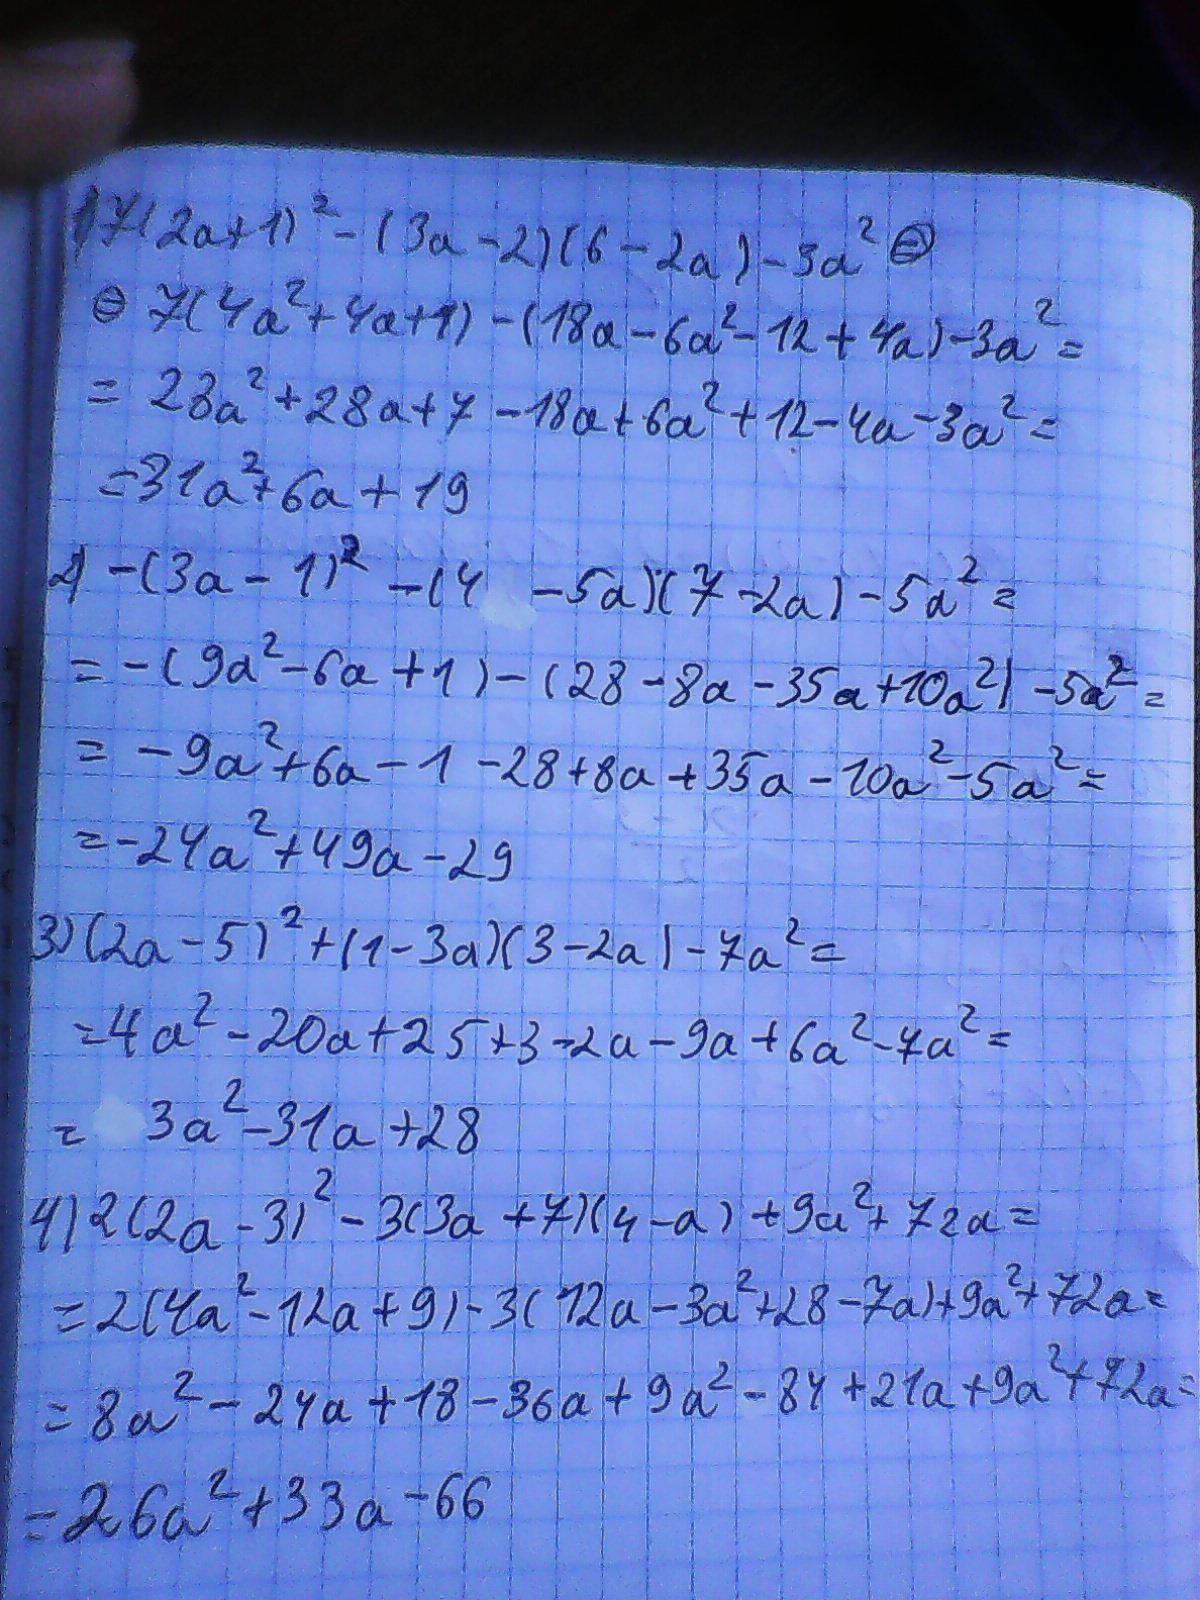 1) 7(2a+1)² - (3a-2)(6-2a) - 3a² ⊜
⊜ 7(4a²+4a+1) - (18a - 6a² - 12 + 4a) - 3a² =
= 28a² + 28a + 7 - 18a + 6a² + 12 - 4a - 3a² =
= 31a² + 6a + 19
2) -(3a - 1)² - (4 - 5a)(7 - 2a) - 5a² =
= -(9a² - 6a + 1) - (28 - 8a - 35a + 10a²) - 5a² =
= -9a² + 6a - 1 - 28 + 8a + 35a - 10a² - 5a² =
= -24a² + 49a - 29
3) (2a - 5)² + (1 - 3a)(3 - 2a) - 7a² =
= 4a² - 20a + 25 + 3 - 2a - 9a + 6a² - 7a² =
= 3a² - 31a + 28
4) 2(2a - 3)² - 3(3a + 7)(4 - a) + 9a² + 72a =
= 2(4a² - 12a + 9) - 3(12a - 3a² + 28 - 7a) + 9a² + 72a =
= 8a² - 24a + 18 - 36a + 9a² - 84 + 21a + 9a² + 72a =
= 26a² + 33a - 66